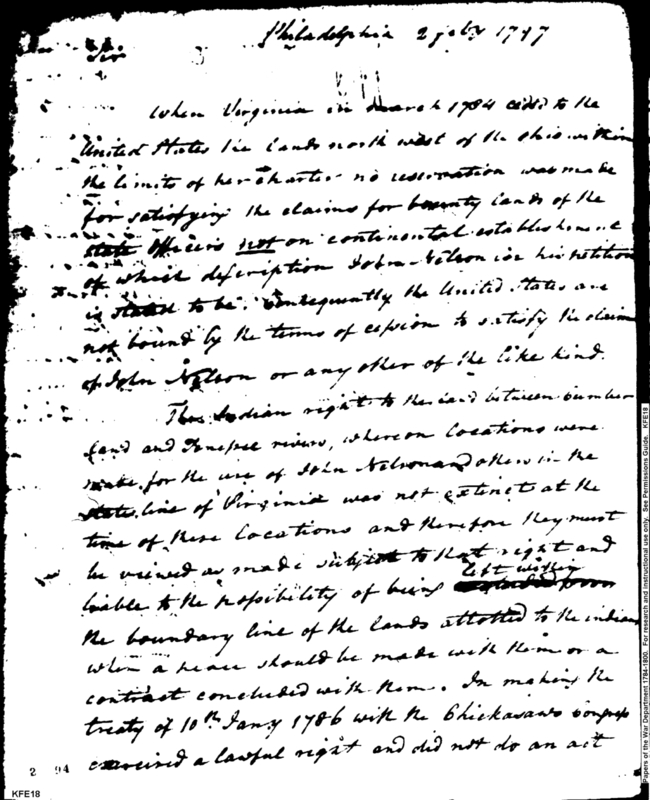 Philadelphia 2 feby 1797
Sir
When Virginia in March 1784 ceded to the
United States the lands north west of the Ohio within
the limits of her charter no reservation was made
for satisfying the claims for bounty lands of the
state officers not on continental establishment
of which description John Nelson in his petition
is stated to be. Consequently the United States are
not bound by the terms of cession to satisfy the claim
of John Nelson or any other of the like kind.
The Indian right to the land between Cumber
land and Tenessee rivers, whereon locations were
made for the use of John Nelson and others in the
state line of Virginia was not extinct at the
time of these locations and therefore they must
be viewed as made subject to that right and
left within
liable to the possibility of being
the boundary line of the lands allotted to the indians
when a peace should be made with them or a
contract concluded with them. In making the
treaty of 10th Jany 1786 with the Chickasaws Congress
exercised a lawful right and did not do an act
2 94
KFE18
Papers of the War Department 1784-1800. For research and instructional use only. See Permissions Guide. KFE18